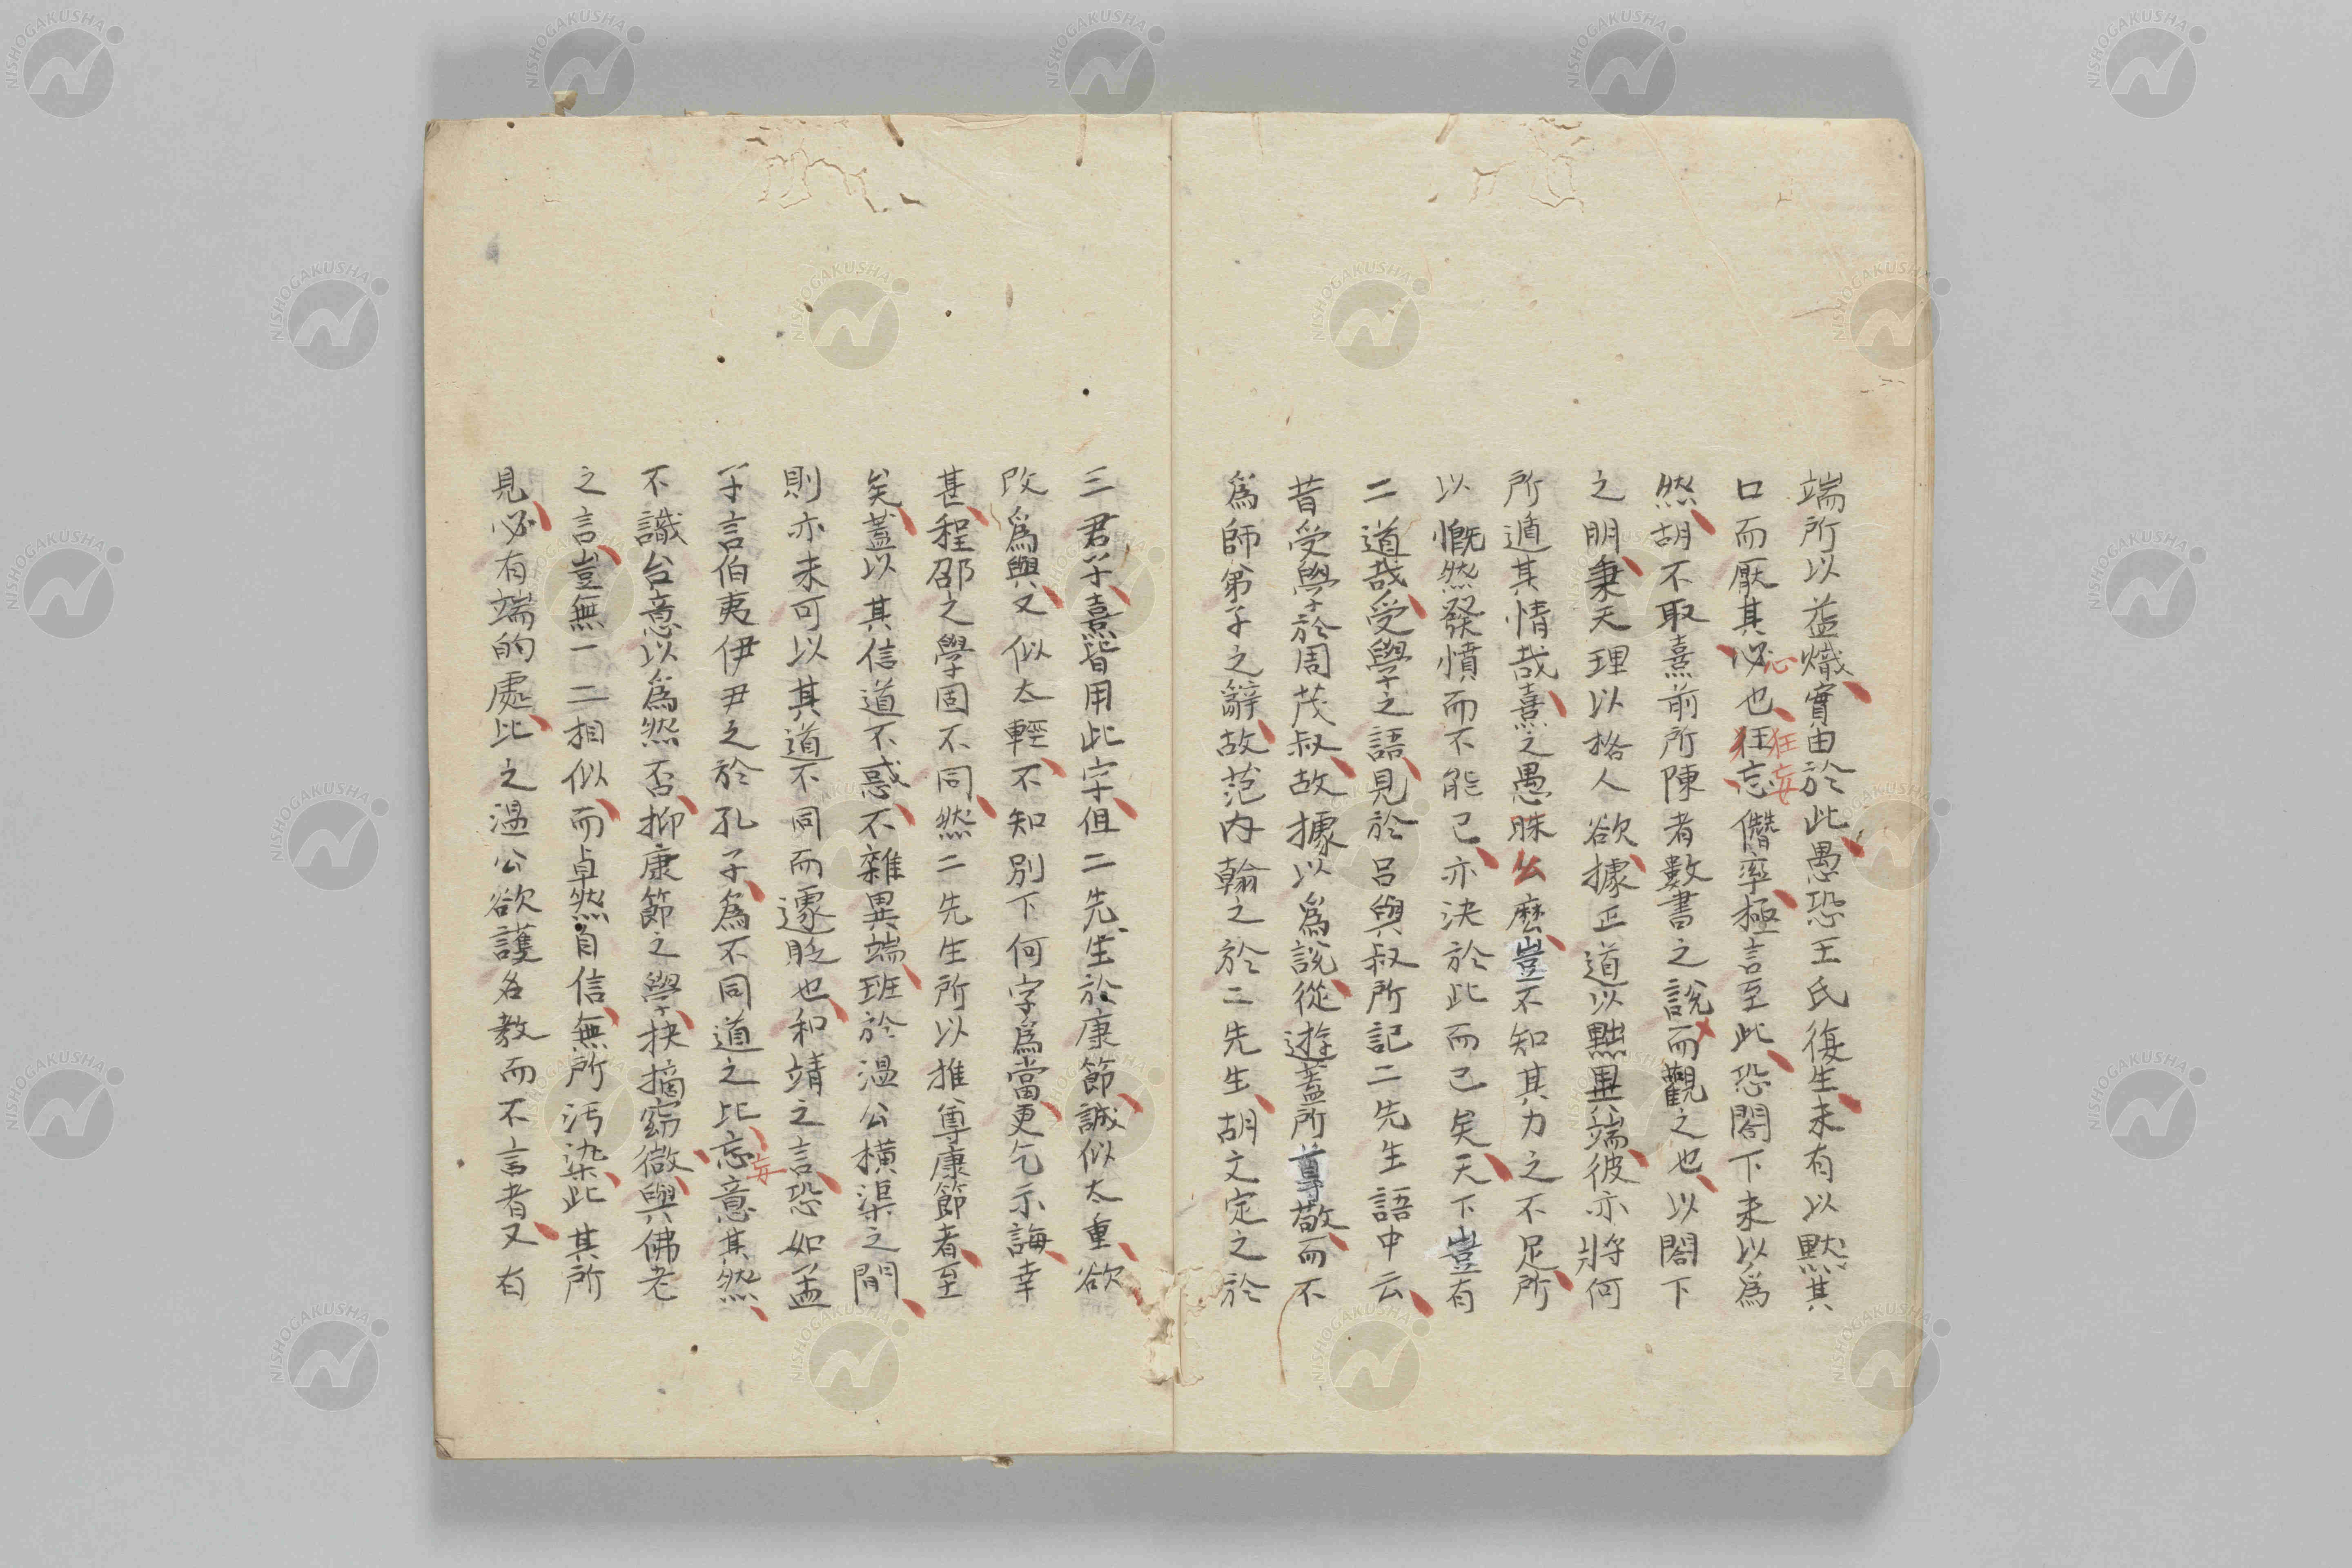 端所以益熾實由於此愚恐王氏復生未有以默其
口而厭其必也狂忘僭率極言至此恐閤下未以爲
心
狂妄
然胡不取熹前所陳者數書之說而觀之也以閤下
之明秉天理以格人欲據正道以黜異端彼亦將何
所遁其情哉熹之愚眛么麽豈不知其力之不足所
以慨然發憤而不能已亦決於此而已矣天下豈有
二道哉受學之語見於呂與叔所記二先生語中云
昔受學於周茂叔故據以爲說從遊蓋所尊敬而不
爲師弟子之辭故范内翰之於二先生胡文定之於
三君子熹皆用此字但二先生於康節誠似太重欲
改爲與又似太輕不知別下何字爲當更乞示誨幸
甚程邵之學固不同然二先生所以推尊康節者至
矣蓋以其信道不惑不雜異端班於温公横渠之間
則亦未可以其道不同而遽貶也和靖之言恐如孟
子言伯夷伊尹之於孔子爲不同道之比忘意其然
妄
不識台意以爲然否抑康節之學抉摘窈微與佛老
之言豈無一二相似而卓然自信無所汚染此其所
見必有端的處比之温公欲護名教而不言者又有
NISHOGAKUSHA